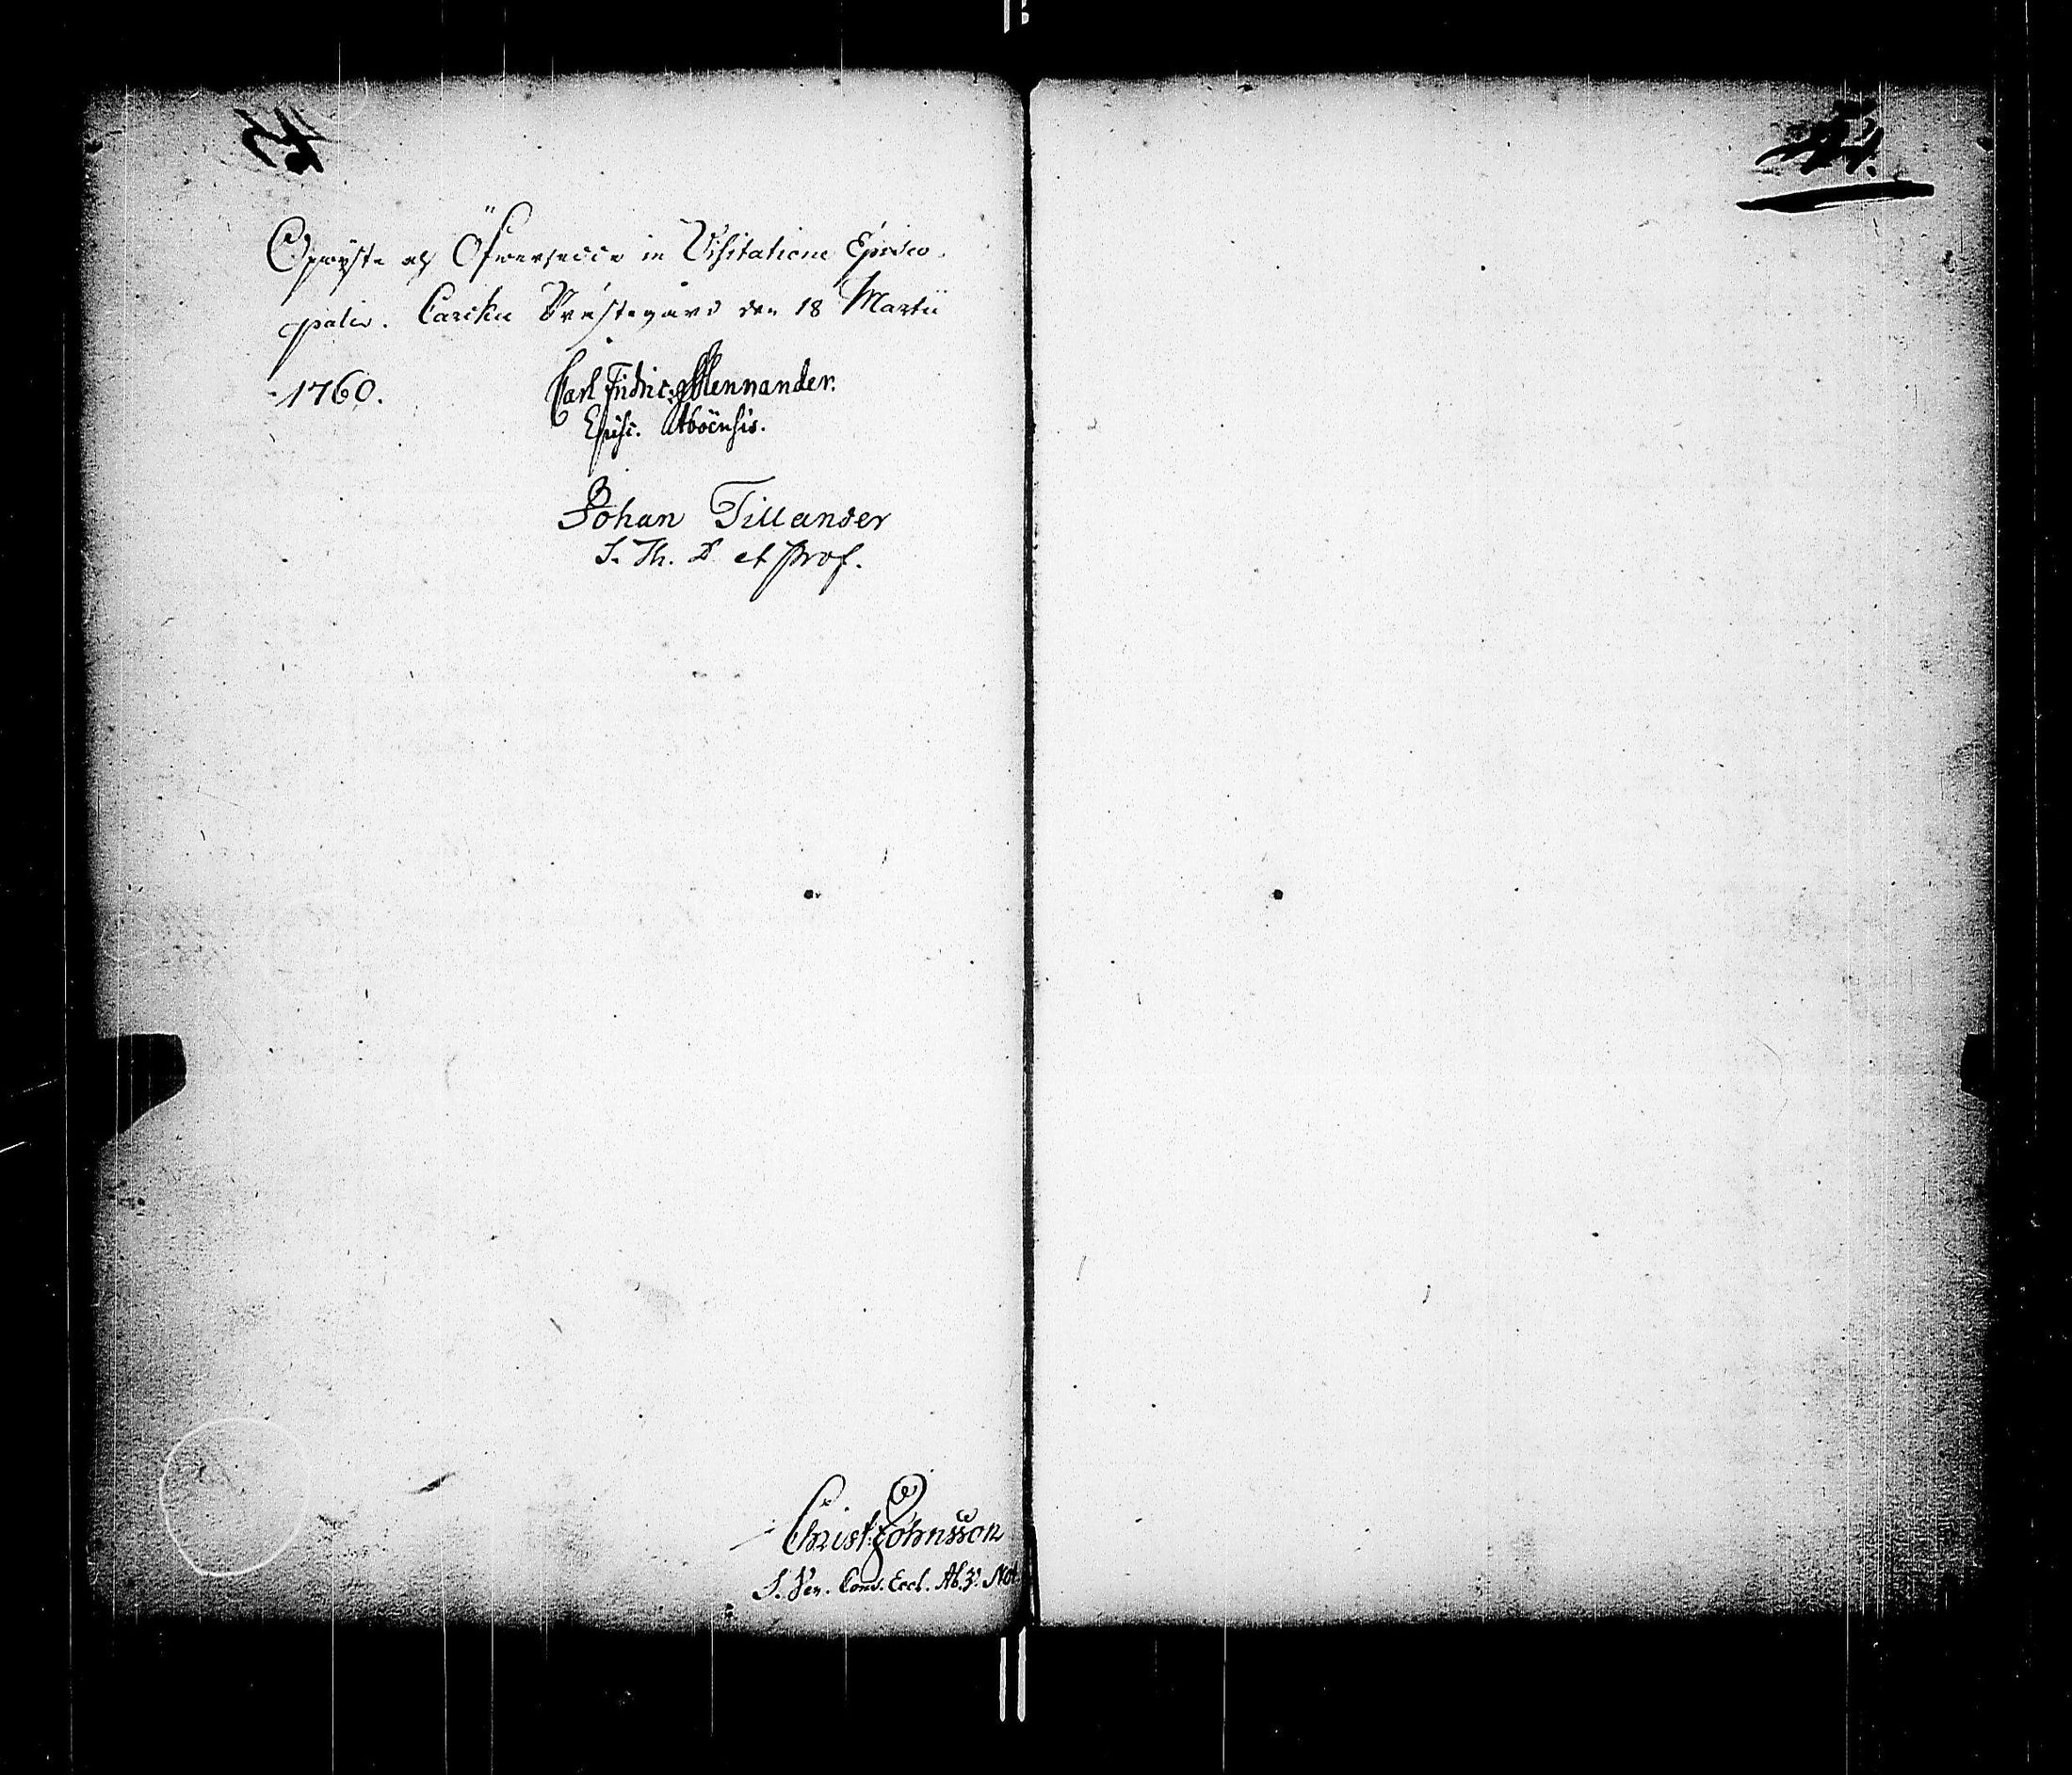 Öfwersedde in Visitatione Episco-
palis. Carcku Prästegård den 18 Martii
1760.
Carl Fridric Mennander.
Episc. Aboënsis.
Johan Tillander
S. Th. D. et Prof.
Christ: Johnsson
S. Ven. Cons. Eccl. Ab. Not.